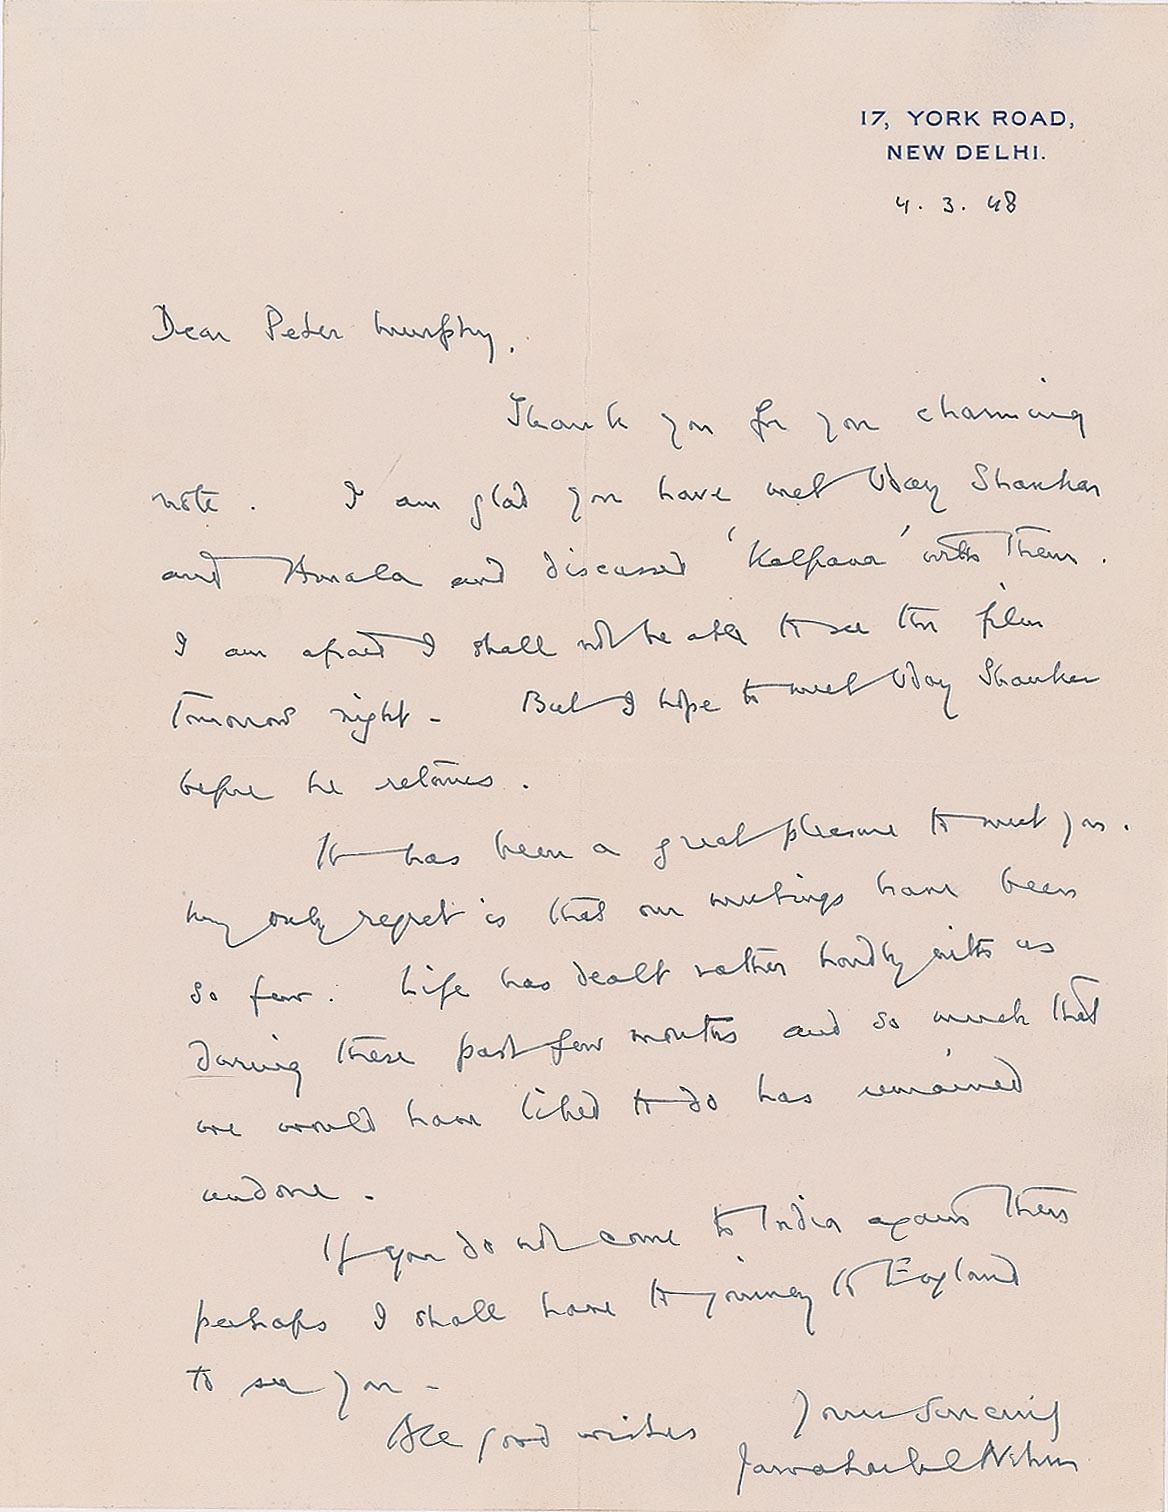 17, YORK ROAD,
NEW DELHI.
4. 3. 48
Dear Peter Murphy,
Thank you for your charming
note. I am glad you have met Uday Shankar
and Amala and discussed 'Kalpana' with them.
I am afraid I shall not be able to see the film
tomorrow night - But I hope to meet Uday Shankar
before he returns.
It has been a great pleasure to meet you.
My only regret is that our meetings have been
so few. Life has dealt rather hardly with us
during these past few months and so much that
we would have liked to do has remained
undone.
If you do not come to India again then
perhaps I shall have to journey to England
to see you -
All good wishes
Yours sincerely
Jawaharlal Nehru